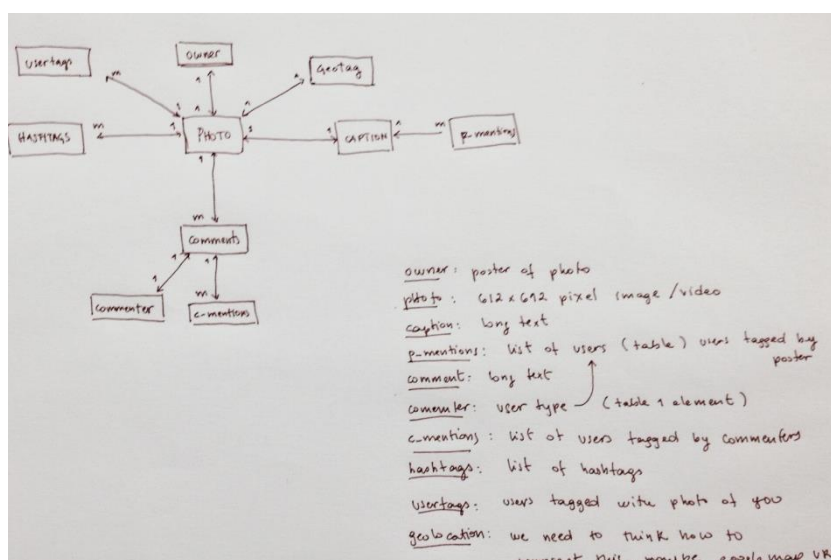 usertags
owner
Geotag
m
1
1
1
1
1
HASHTAGS
m
1
PHOTO
1
1
CAPTION
1
m
p-mentions
1
m
comments
1
1
1
m
commenter
c-mentions
owner: poster of photo
photo: 612 x 612 pixel image / video
caption: long text
p-mentions: list of users (table) users tagged by
poster
comment: long text
user type (table 1 element)
c-mentions: list of users tagged by commenters
hashtags: list of hashtags
usertags: users tagged with photo of you
geolocation: we need to think how to
this maybe google map